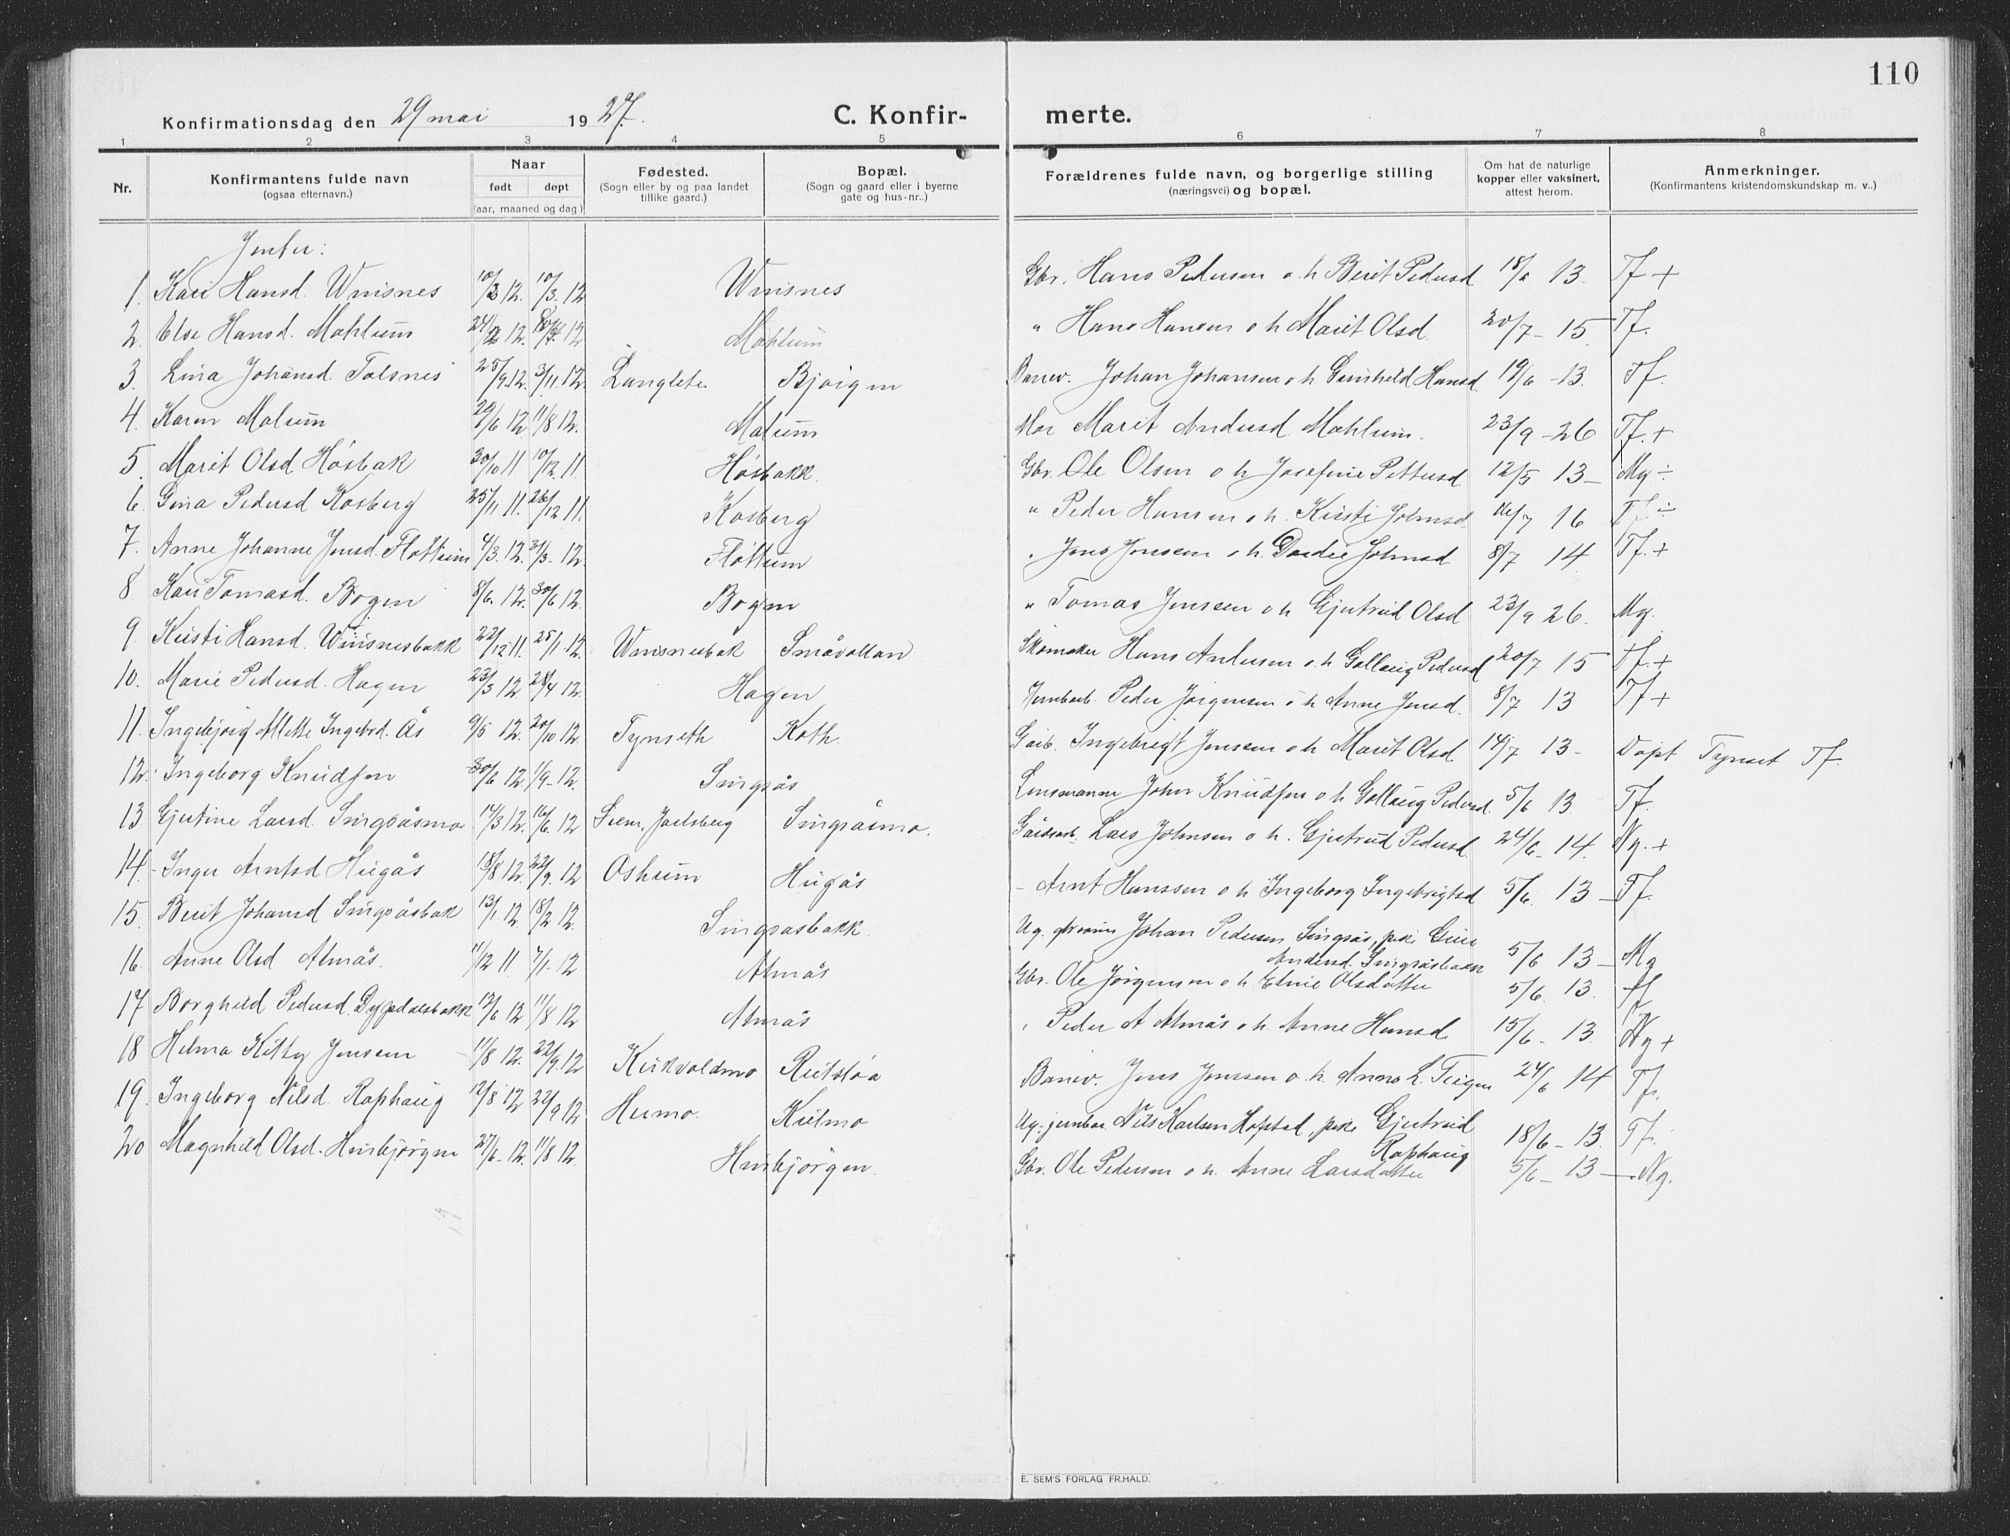 110
Konfirmationsdag den 29 mai 1927. C. Konfirmerte.
1 2 3 4 5 6 7 8
Nr. Konfirmantens fulde navn (ogsaa efternavn.) Naar født døpt (aar, maaned og dag) Fødested. (Sogn eller by og paa landet tillike gaard.) Bopæl. (Sogn og gaard eller i byerne gate og hus-nr.) Forældrenes fulde navn, og borgerlige stilling (næringsvei) og bopæl. Om hat de naturlige kopper eller vaksinert, attest herom. Anmerkninger. (Konfirmantens kristendomskundskap m. v.)
Jenter:
1. Kari Hansd. Winsnes 10/3 12. 10/3. 12 Winsnes Gbr. Hans Pedersen o. h Berit Pedersd 18/6 13. Tf +
2. Else Hansd. Mohlum 24/2 12. 12 Mohlum " Hans Hansen o h Marit Olsd. 20/7 - 15. Tf.
3. Lina Johansd. Tolsnes 25/9 12. 3/11. 12. Langlete Bjørgen Banev. Johan Johansen o h Gunhild Hansd. 19/6 - 13. Tf.
4. Karen Molum 29/6 12 11/8 12. Molum Mor Marit Andersd Mohlum. 23/9 - 26 Tf. +
5. Marit Olsd Høsbak 30/10 11 10/12. 11. Høsbakk. Gbr. Ole Olsen o h Josefine Pettersd 12/5 13 - Mg ÷
6. Gina Pedersd Kosberg 25/11 11. 26/12 11. Kosberg " Peder Hansen o. h. Kirsti Johnsd. 16/7 16 Tf ÷
7. Anne Johanne Jensd. Fløttum 4/3. 12. 31/3 - 12. Fløttum " Jens Jensen o. h. Dordie Johnsd. 8/7 14 Tf. +
8 Kari Tomasd. Bogen 8/6. 12. 30/6 12. Bogen " Tomas Jenssen o h Gjertrud Olsd 23/9 26. Mg.
9. Kirsti Hansd. Winsnesbakk 22/12 11. 25/1. 12. Winsnesbak Småvollan Skomaker Hans Andersen o. h Gollaug Pedersd 20/7 15 Tf. +
10. Marie Pedersd. Hagen 23/3 12 21/4 12. Hagen Jernbarb. Peder Jørgensen o h Anne Jensd. 8/7 13 Tf +
11. Ingebjørg Alette Ingebrd. Ås 9/5 12. 20/10 12. Tynseth Koth. Ingebregt Jensen o h Marit Olsd 14/7 13 - Døpt Tynset Tf.
12. Ingeborg Knudsen 30/6 12 1/9 - 12. Singsås Lensmanne John Knudsen o h Gollaug Pedersd 5/6 13 Tf.
13 Gjertine Larsd. Singsåsmo 14/3 12. 16/6. 12 Sem, Jarlsberg Singsåsmo. Gårdsarb. Lars Johnsen o. h. Gjertrud Pedersd. 24/6 - 14. Ng. +
14. Inger Arntsd Hugås 18/8 12. 22/9. 12 Oshum Hugås - Arnt Hanssen o h Ingeborg Ingebrigtsd 5/6. 13 - Tf.
15. Berit Johansd Singsåsbak 13/1 12 18/2 12. Singsåsbakk. Ug. Johan Pedersen Singsås, pike Guri Andersd. Singsåsbakk 5/6 13 - Mg
16. Anne Olsd Almås. 11/12 11 7/1 - 12 Almås Gbr. Ole Jørgensen o h Eline Olsdatter 5/6. 13. Tf
17 Borghild Pedersd. Dypdalsbakk 12/6 12 11/8 12 Almås " Peder A Almås o h. Anne Hansd. 15/6 - 13. Ng +
18 Helma Kitty Jensen 11/8 12. 22/9. 12 Kirkvoldmo Reitstøa Banev. Jens Jenssen o. h. Anna L. Teigen 24/6 14 Tf.
19. Ingeborg Nilsd. Raphaug 12/8 12 22/9 12 Heimo. Kielmo Ug. jernbar. Nils Karlsen Hofstad, pike Gjertrud Raphaug 18/6 - 13. Tf.
20 Magnhild Olsd. Husbjørgen 27/6 - 12. 11/8 12. Husbjørgen. Gbr. Ole Pedersen o h. Anne Larsdatter 5/6 - 13 - Ng.
E. SEM'S FORLAG FR.HALD.